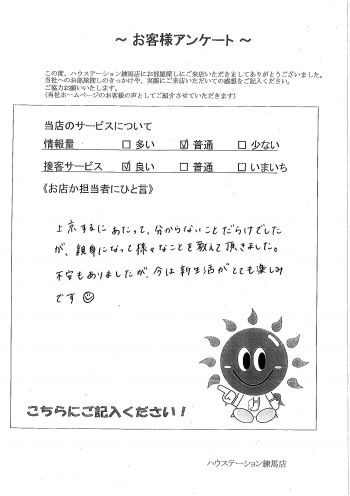 ～ お客様アンケート ～
この度、ハウステーション練馬店にお部屋探しにご来店いただきましてありがとうございました。
当社へのお部屋探しのきっかけや、実際にご来店いただいての感想をご記入ください。
ご協力お願いいたします。
(当社ホームページのお客様の声としてご紹介させていただきます)
当店のサービスについて
情報量 □ 多い ☑ 普通 □ 少ない
接客サービス ☑ 良い □ 普通 □ いまいち
《お店か担当者にひと言》
上京するにあたって、分からないことだらけでした
が、親身になって様々なことを教えて頂きました。
不安もありましたが、今は新生活がとても楽しみ
です☺
こちらにご記入ください！
ハウステーション練馬店